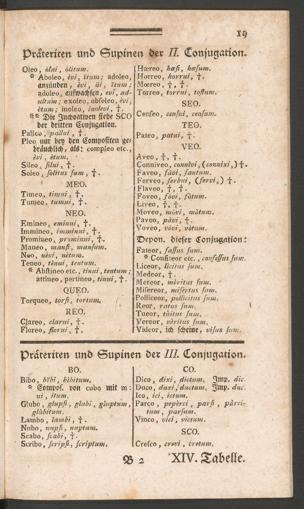 19
Präteriten und Supinen der II. Conjugation.
Oleo, olui, olitum.
* Aboleo, evi, itum; adoleo,
anzünden, evi, ui, itum;
adoleo, aufwachsen, evi, ad-
ultum; exoleo, obsoleo, evi,
etum; inoleo, inolevi, †.
** Die Inchoativen siehe SCO
der dritten Conjugation.
Palleo, pallui, †.
Pleo nur bey den Compositen ge-
bräuchlich, als: compleo etc.,
evi, etum.
Sileo, silui, †.
Soleo, solitus sum, †.
MEO.
Timeo, timui, †.
Tumeo, tumui, †.
NEO.
Emineo, eminui, †.
Immineo, imminui, †.
Promineo, prominui, †.
Maneo, mansi, mansum.
Neo, nevi, netum.
Teneo, tenui, tentum.
* Abstineo etc., tinui, tentum;
attineo, pertineo, tinui, †.
QUEO.
Torqueo, torsi, tortum.
REO.
Clareo, clarui, †.
Floreo, florui, †.
Hæreo, hæsi, hæsum.
Horreo, horrui, †.
Mœreo, †, †.
Torreo, torrui, tostum.
SEO.
Censeo, censui, censum.
TEO.
Pateo, patui, †.
VEO.
Aveo, †, †.
Conniveo, connivi, (connixi,) †.
Faveo, favi, fautum.
Ferveo, ferbui, (fervi,) †.
Flaveo, †, †.
Foveo, fovi, fotum.
Liveo, †, †.
Moveo, movi, motum.
Paveo, pavi, †.
Voveo, vovi, votum.
Depon. dieser Conjugation:
Fateor, fassus sum.
* Confiteor etc., confessus sum.
Liceor, licitus sum.
Medeor, †.
Mereor, meritus sum.
Misereor, misertus sum.
Polliceor, pollicitus sum.
Reor, ratus sum.
Tueor, tuitus sum.
Vereor, veritus sum.
Videor, ich scheine, visus sum.
Präteriten und Supinen der III. Conjugation.
BO.
Bibo, bibi, bibitum.
* Compos. von cubo mit m:
ui, itum.
Glubo, glupsi, glubi, gluptum,
glubitum.
Lambo, lambi, †.
Nubo, nupsi, nuptum.
Scabo, scabi, †.
Scribo, scripsi, scriptum.
CO.
Dico, dixi, dictum, Imp. dic.
Duco, duxi, ductum, Imp. duc.
Ico, ici, ictum.
Parco, peperci, parsi, parci-
tum, parsum.
Vinco, vici, victum.
SCO.
Cresco, crevi, cretum.
B 2
XIV. Tabelle.